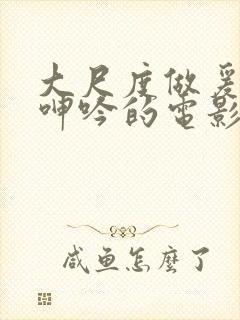 大尺度做爰
呻吟的电影
咸鱼怎麼了